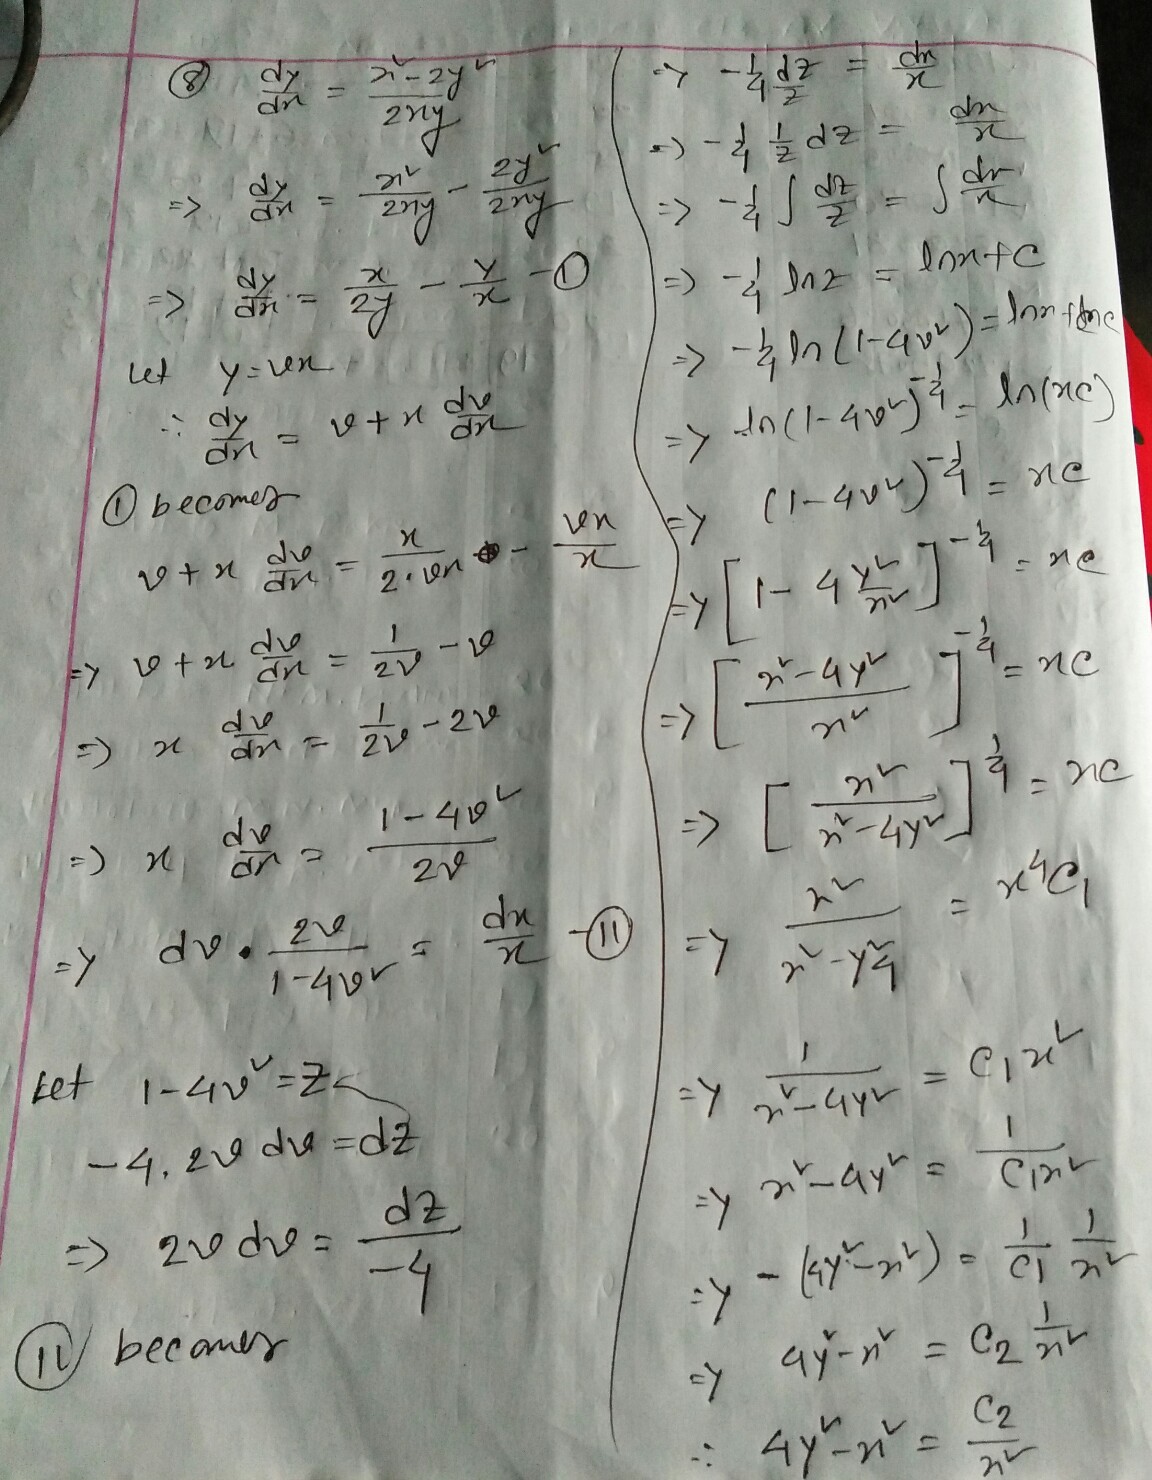 ⑧ dy/dx = (x² - 2y²)/(2xy)
=> dy/dx = x²/(2xy) - 2y²/(2xy)
=> dy/dx = x/(2y) - y/x - ①
Let y = vx
∴ dy/dx = v + x dv/dx
① becomes
v + x dv/dx = x/(2·vx) - vx/x
=> v + x dv/dx = 1/(2v) - v
=> x dv/dx = 1/(2v) - 2v
=> x dv/dx = (1 - 4v²)/(2v)
=> dv · 2v/(1 - 4v²) = dx/x - ⑪
Let 1 - 4v² = z
-4. 2v dv = dz
=> 2v dv = dz/(-4)
⑪ becomes
=> -1/4 dz/z = dx/x
=> -1/4 1/z dz = dx/x
=> -1/4 ∫ dz/z = ∫ dx/x
=> -1/4 ln z = ln x + c
=> -1/4 ln (1 - 4v²) = ln x + ln c
=> ln (1 - 4v²)^(-1/4) = ln (xc)
=> (1 - 4v²)^(-1/4) = xc
=> [1 - 4 y²/x²]^(-1/4) = xc
=> [(x² - 4y²)/x²]^(-1/4) = xc
=> [x²/(x² - 4y²)]^(1/4) = xc
=> x²/(x² - y²4) = x⁴C₁
=> 1/(x² - 4y²) = C₁x²
=> x² - 4y² = 1/(C₁x²)
=> - (4y² - x²) = 1/C₁ 1/x²
=> 4y² - x² = C₂ 1/x²
∴ 4y² - x² = C₂/x²